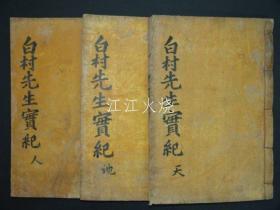 白村先生實紀 天
白村先生實紀 地
白村先生實紀 人
江江火烧